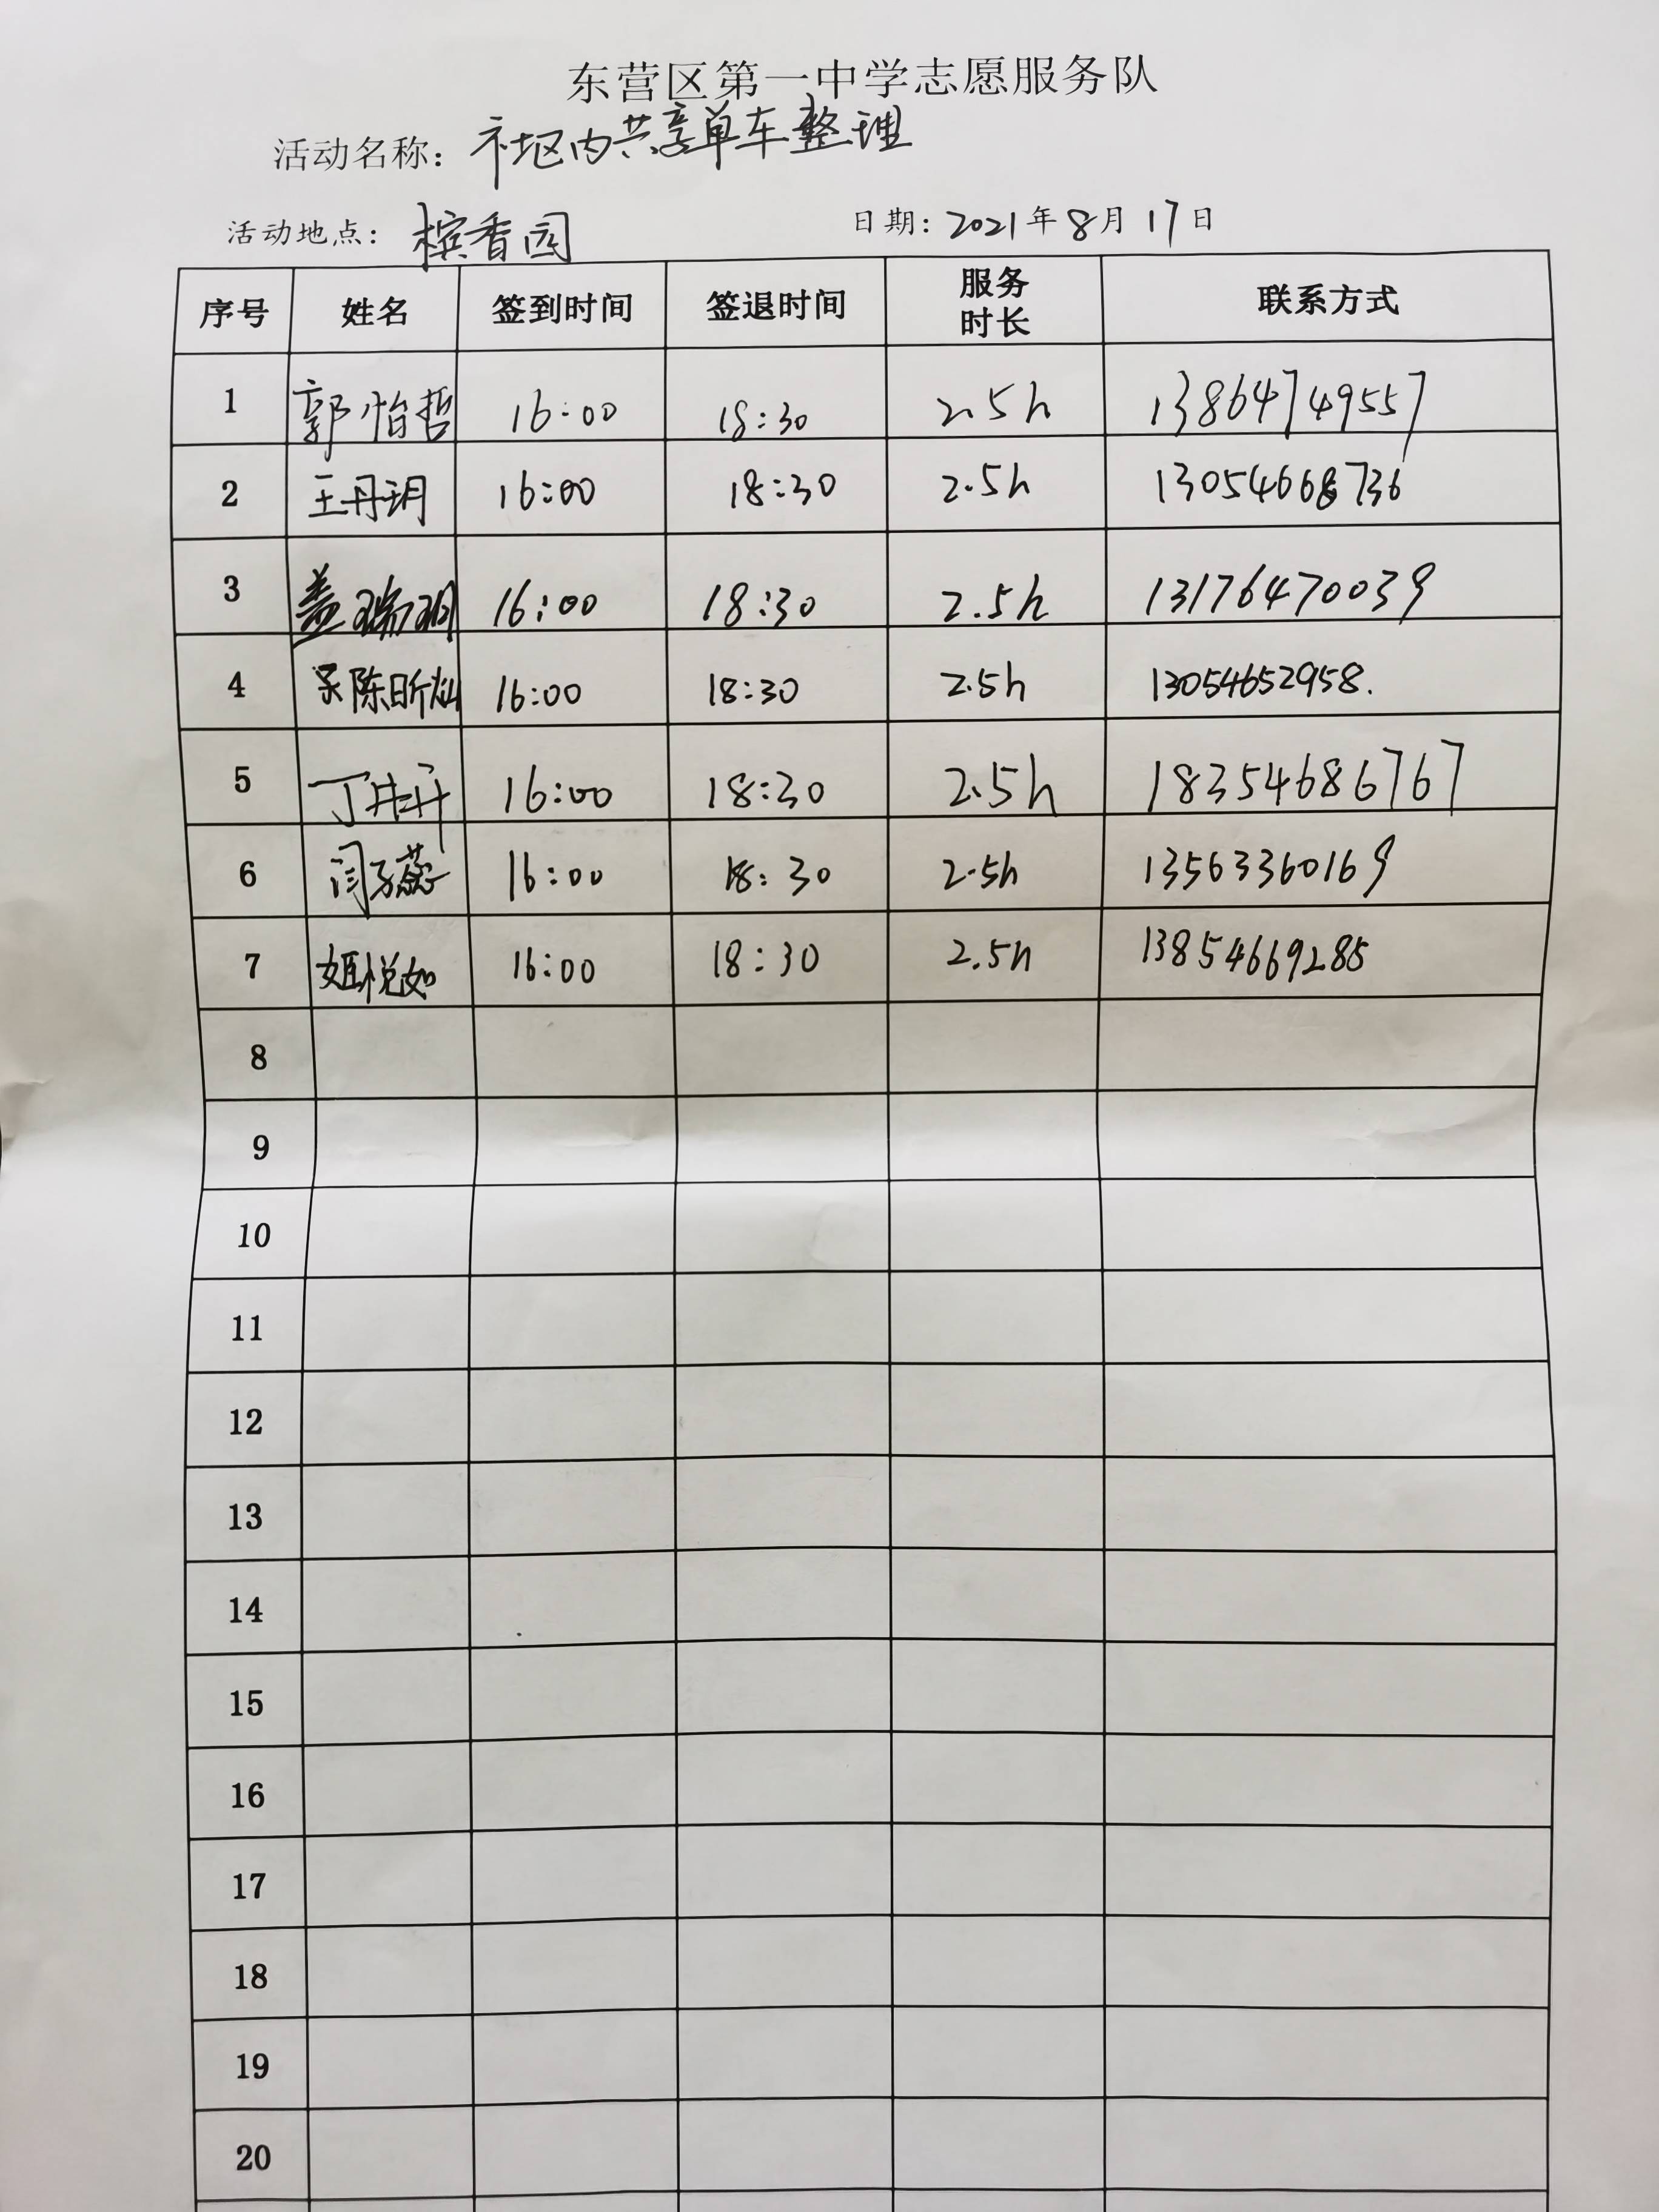 东营区第一中学志愿服务队
活动名称：社区内共享单车整理
活动地点：槟香园 日期：2021年8月17日
序号 姓名 签到时间 签退时间 服务时长 联系方式
1 郭怡哲 16:00 18:30 2.5h 13864749557
2 王丹玥 16:00 18:30 2.5h 13054668736
3 盖瑞玥 16:00 18:30 2.5h 13176470039
4 陈昕灿 16:00 18:30 2.5h 13054652958.
5 丁 16:00 18:30 2.5h 18354686767
6 闫子燕 16:00 18:30 2.5h 13563360169
7 姬悦如 16:00 18:30 2.5h 13854669285
8
9
10
11
12
13
14
15
16
17
18
19
20